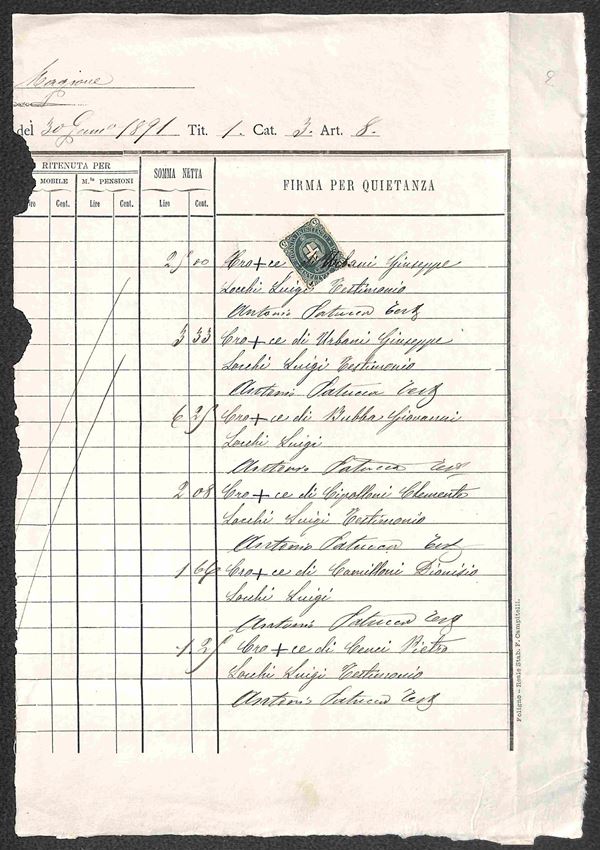 2
Magione
del 30 Genn° 1891 Tit. 1. Cat. 3. Art. 8.
RITENUTA PER
MOBILE M.te PENSIONI SOMMA NETTA FIRMA PER QUIETANZA
Cent. Lire Cent. Lire Cent.
25 00 Cro+ce di Urbani Giuseppe
Locchi Luigi Testimonio
Antonio Patucca Test
3 33 Cro+ce di Urbani Giuseppe
Locchi Luigi Testimonio
Antonio Patucca Test
6 25 Cro+ce di Bubba Giovanni
Locchi Luigi
Antonio Patucca Test
2 08 Cro+ce di Cipolloni Clemente
Locchi Luigi Testimonio
Antonio Patucca Test
1 66 Cro+ce di Camilloni Dionisio
Locchi Luigi
Antonio Patucca Test
1 25 Cro+ce di Cenci Pietro
Locchi Luigi Testimonio
Antonio Patucca Test
Foligno - Reale Stab. F. Campitelli.